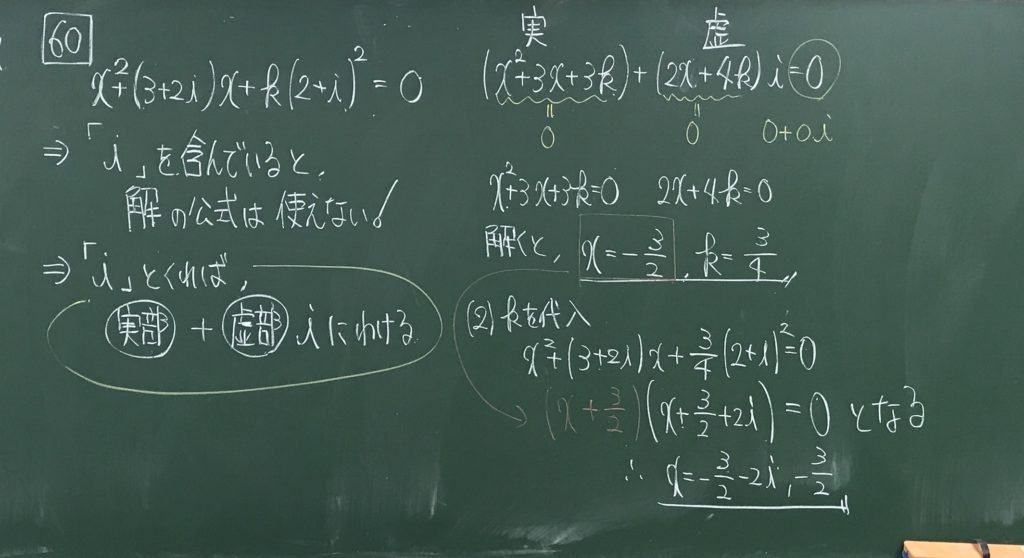 60
x²+(3+2i)x+k(2+i)²=0
⇒「i」を含んでいると、
解の公式は使えない!
⇒「i」とくれば、
実部 + 虚部 i にわける
実 虚
(x²+3x+3k)+(2x+4k)i=0
0 0 0+0i
x²+3x+3k=0 2x+4k=0
解くと、x=-3/2, k=3/4
(2) kを代入
x²+(3+2i)x+3/4(2+i)²=0
(x+3/2)(x+3/2+2i)=0 となる
∴ x=-3/2-2i, -3/2